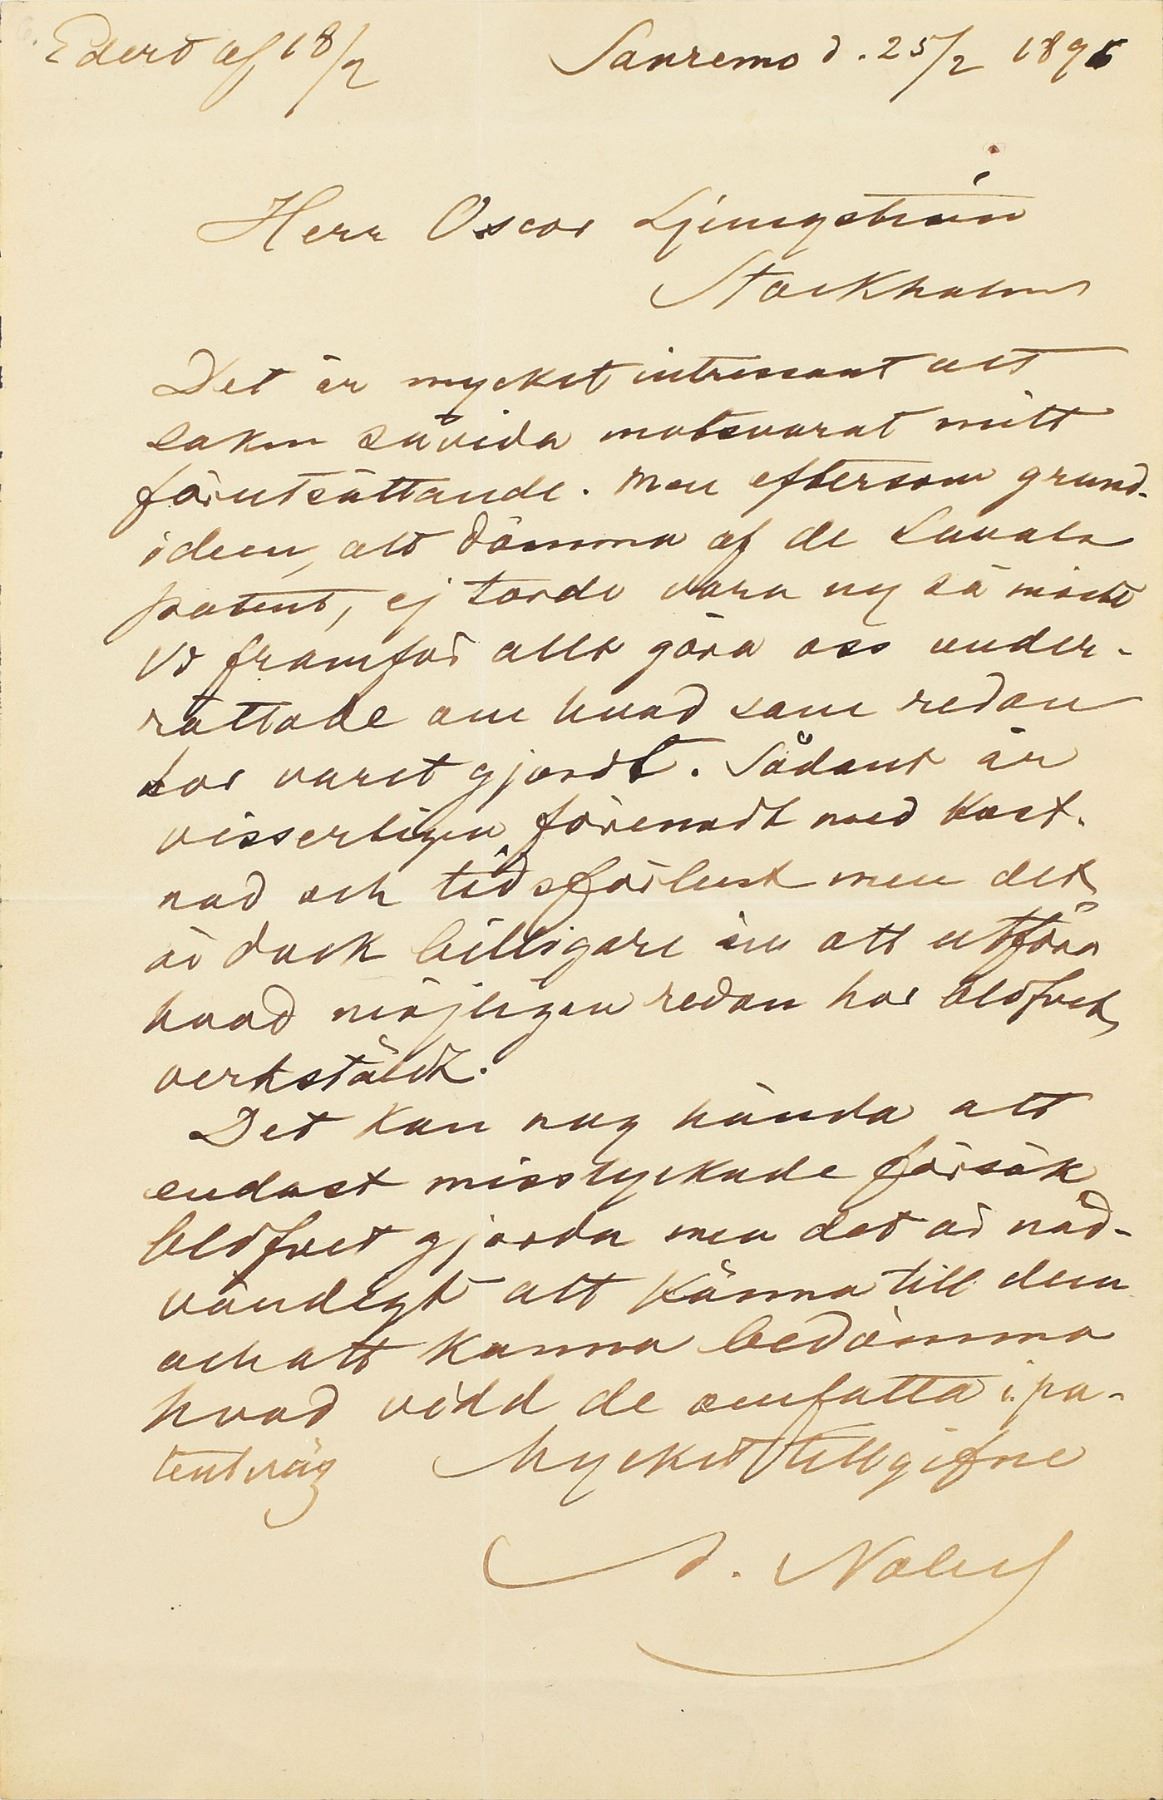 Edert af 18/2 Sanremo d. 25/2 1896
Herr Oscar Ljungström
Stockholm
Det är mycket intressant att
saken såvida motsvarat mitt
förutsättande. Men eftersom grund-
ideen, att dömma af de Lavals
patent, ej torde vara ny så måste
vi framför allt göra oss under-
rättade om hvad som redan
har varit gjordt. Sådant är
visserligen förenadt med kost-
nad och tidsförlust men det
är dock billigare än att utföra
hvad möjligen redan har blifvit
verkstäldt.
Det kan nog hända att
endast misslyckade försök
blifvit gjorda men det är nöd-
vändigt att känna till dem
och att kunna bedömma
hvad vidd de omfatta i pa-
tentväg Mycket tillgifne
A. Nobel